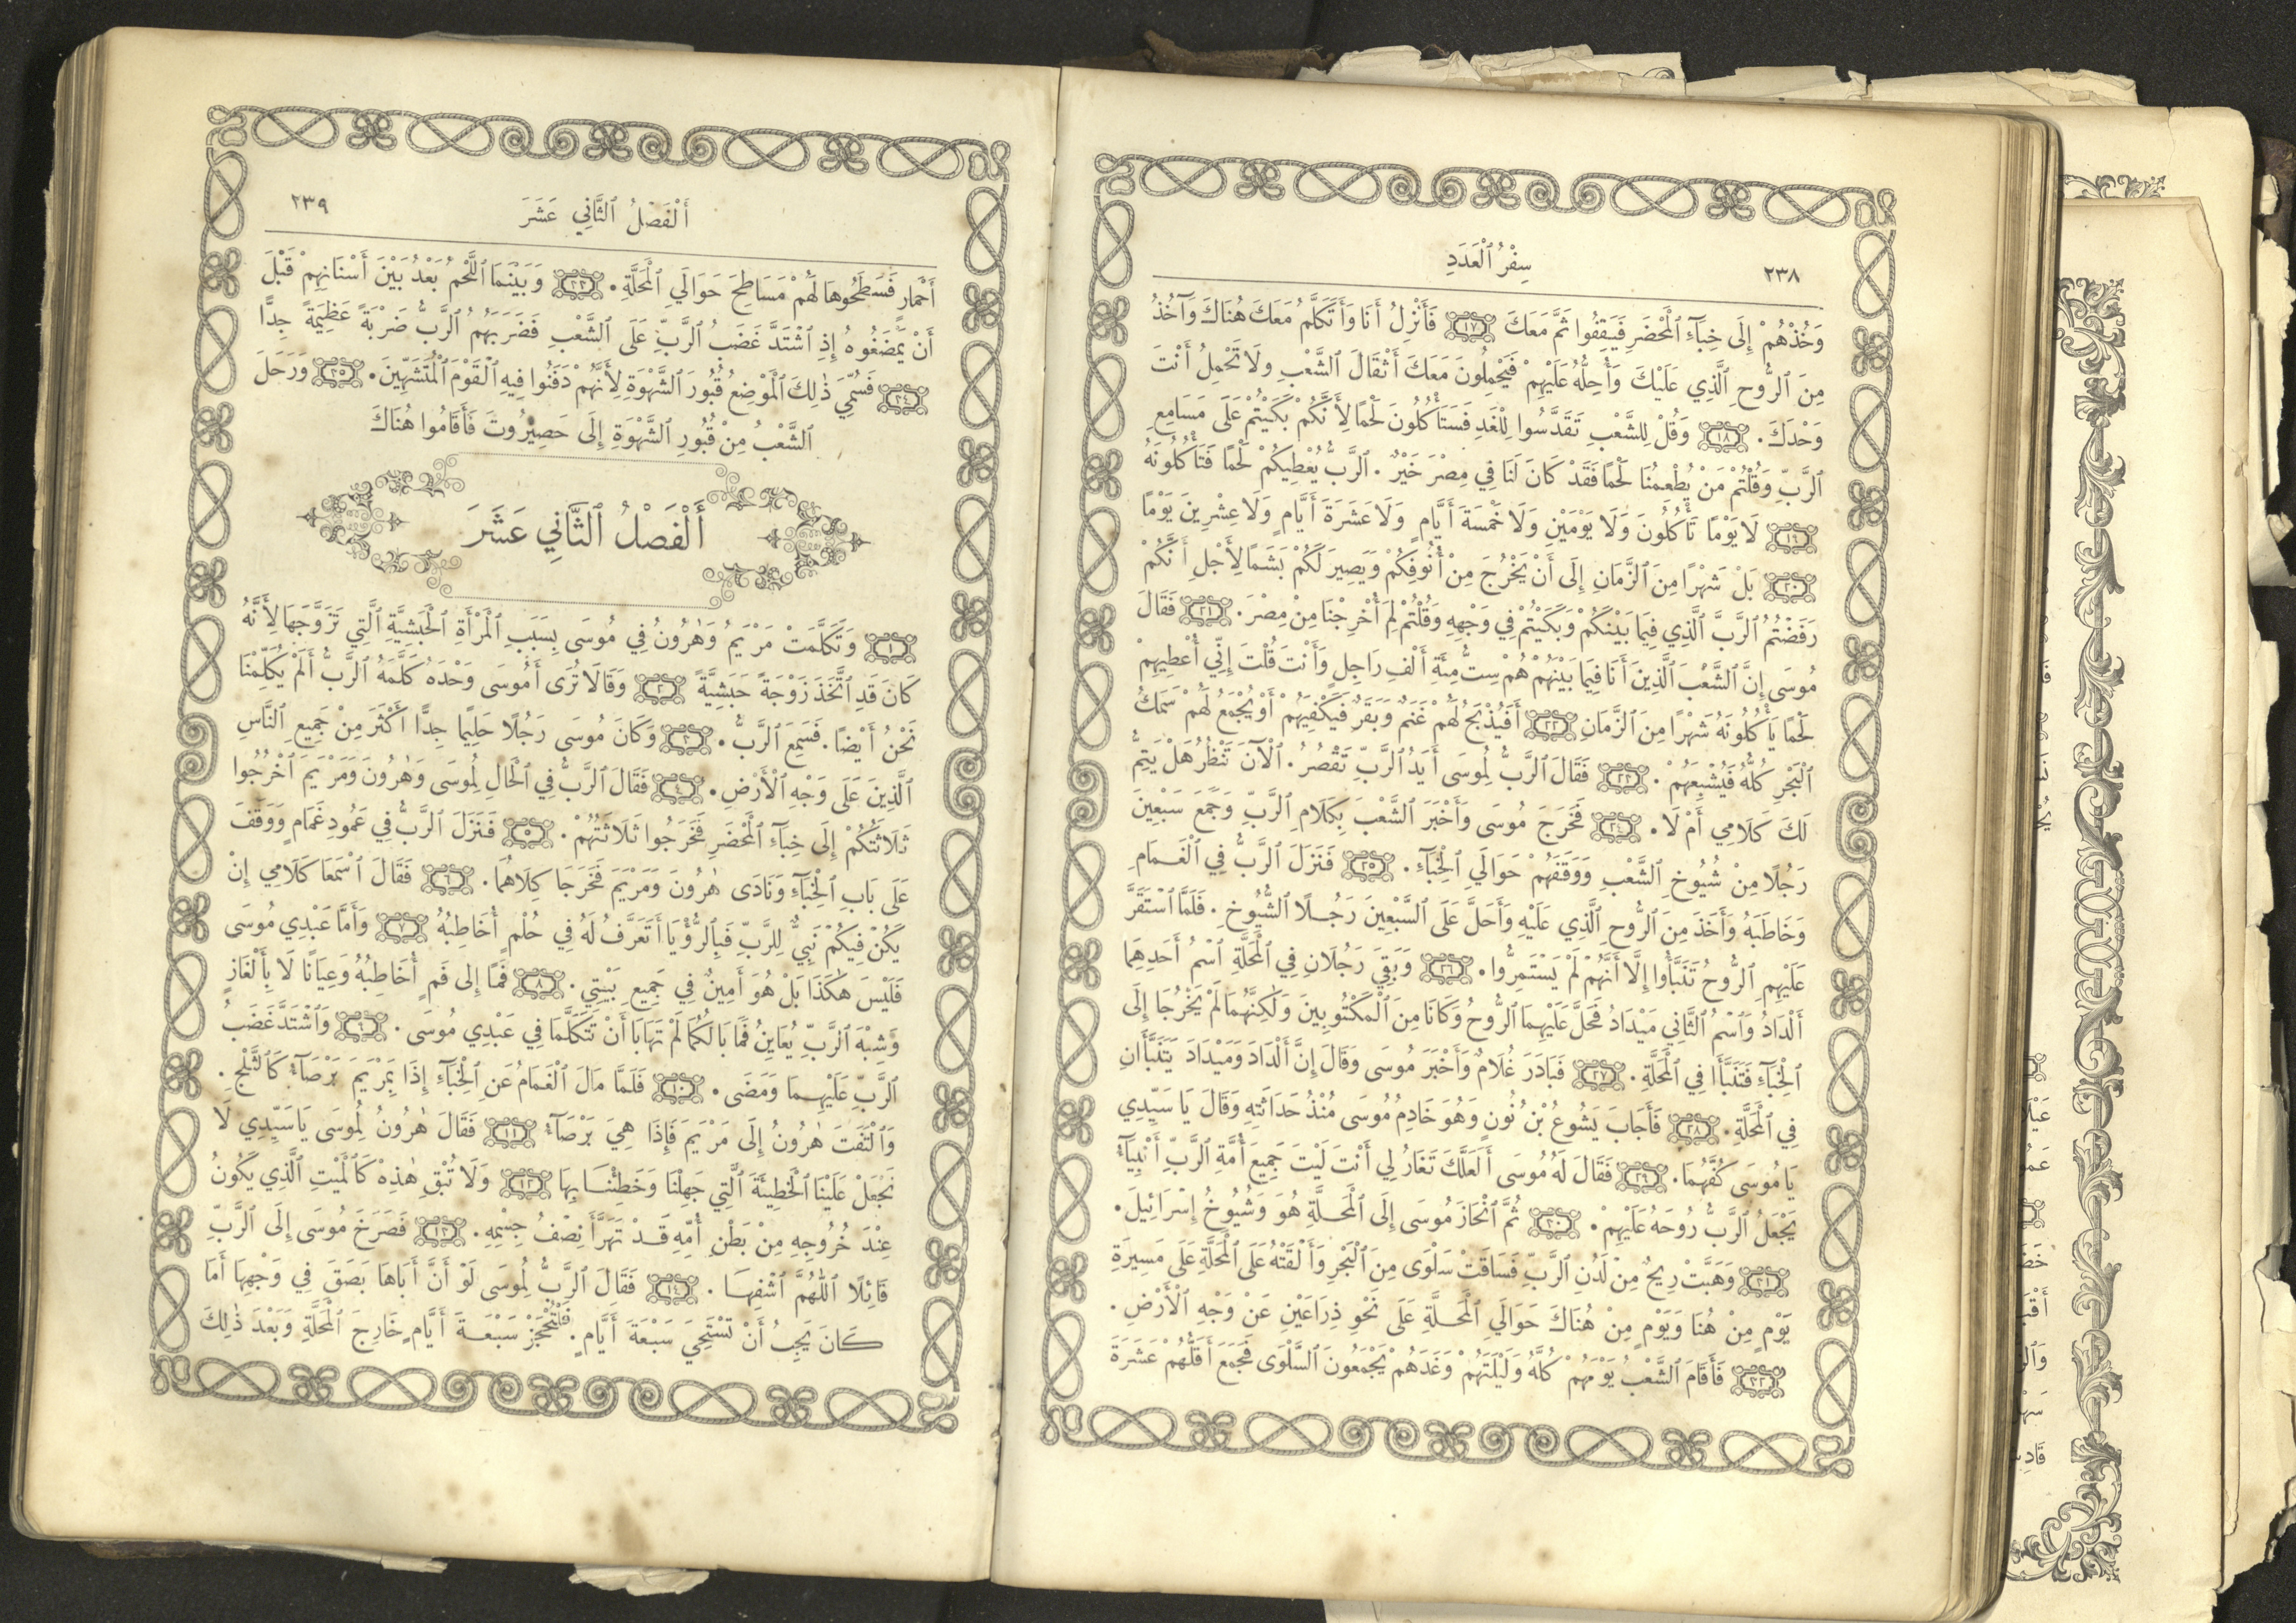 ٢٣٨
سِفْرُ ٱلْعَدَدِ
وَخُذْهُمْ إِلَى خِبَآءِ ٱلْمَحْضَرِ فَيَقِفُوا ثَمَّ مَعَكَ ١٧ فَأَنْزِلُ أَنَا وَأَتَكَلَّمُ مَعَكَ هُنَاكَ وَآخُذُ
مِنَ ٱلرُّوحِ ٱلَّذِي عَلَيْكَ وَأُحِلُّهُ عَلَيْهِمْ فَيَحْمِلُونَ مَعَكَ أَثْقَالَ ٱلشَّعْبِ وَلَا تَحْمِلُ أَنْتَ
وَحْدَكَ. ١٨ وَقُلْ لِلشَّعْبِ تَقَدَّسُوا لِلْغَدِ فَسَتَأْكُلُونَ لَحْمًا لِأَنَّكُمْ بَكَيْتُمْ عَلَى مَسَامِعِ
ٱلرَّبِّ وَقُلْتُمْ مَنْ يُطْعِمُنَا لَحْمًا فَقَدْ كَانَ لَنَا فِي مِصْرَ خَيْرٌ. ٱلرَّبُّ يُعْطِيكُمْ لَحْمًا فَتَأْكُلُونَهُ
١٩ لَا يَوْمًا تَأْكُلُونَ وَلَا يَوْمَيْنِ وَلَا خَمْسَةَ أَيَّامٍ وَلَا عَشَرَةَ أَيَّامٍ وَلَا عِشْرِينَ يَوْمًا
٢٠ بَلْ شَهْرًا مِنَ ٱلزَّمَانِ إِلَى أَنْ يَخْرُجَ مِنْ أُنُوفِكُمْ وَيَصِيرَ لَكُمْ بَشَمًا لِأَجْلِ أَنَّكُمْ
رَفَضْتُمُ ٱلرَّبَّ ٱلَّذِي فِيمَا بَيْنَكُمْ وَبَكَيْتُمْ فِي وَجْهِهِ وَقُلْتُمْ لِمَ أُخْرِجْنَا مِنْ مِصْرَ. ٢١ فَقَالَ
مُوسَى إِنَّ ٱلشَّعْبَ ٱلَّذِينَ أَنَا فِيمَا بَيْنَهُمْ هُمْ سِتُّ مِئَةِ أَلْفِ رَاجِلٍ وَأَنْتَ قُلْتَ إِنِّي أُعْطِيهِمْ
لَحْمًا يَأْكُلُونَهُ شَهْرًا مِنَ ٱلزَّمَانِ ٢٢ أَفَيُذْبَحُ لَهُمْ غَنَمٌ وَبَقَرٌ فَيَكْفِيَهُمْ أَوْ يُجْمَعُ لَهُمْ سَمَكُ
ٱلْبَحْرِ كُلُّهُ فَيُشْبِعَهُمْ. ٢٣ فَقَالَ ٱلرَّبُّ لِمُوسَى أَيَدُ ٱلرَّبِّ تَقْصُرُ. ٱلْآنَ تَنْظُرُ هَلْ يَتِمُّ
لَكَ كَلَامِي أَمْ لَا. ٢٤ فَخَرَجَ مُوسَى وَأَخْبَرَ ٱلشَّعْبَ بِكَلَامِ ٱلرَّبِّ وَجَمَعَ سَبْعِينَ
رَجُلًا مِنْ شُيُوخِ ٱلشَّعْبِ وَوَقَفَهُمْ حَوَالَيِ ٱلْخِبَآءِ. ٢٥ فَنَزَلَ ٱلرَّبُّ فِي ٱلْغَمَامِ
وَخَاطَبَهُ وَأَخَذَ مِنَ ٱلرُّوحِ ٱلَّذِي عَلَيْهِ وَأَحَلَّ عَلَى ٱلسَّبْعِينَ رَجُلًا ٱلشُّيُوخِ. فَلَمَّا ٱسْتَقَرَّ
عَلَيْهِمِ ٱلرُّوحُ تَنَبَّأُوا إِلَّا أَنَّهُمْ لَمْ يَسْتَمِرُّوا. ٢٦ وَبَقِيَ رَجُلَانِ فِي ٱلْمَحَلَّةِ ٱسْمُ أَحَدِهِمَا
أَلْدَادُ وَٱسْمُ ٱلثَّانِي مَيْدَادُ فَحَلَّ عَلَيْهِمَا ٱلرُّوحُ وَكَانَا مِنَ ٱلْمَكْتُوبِينَ وَلٰكِنَّهُمَا لَمْ يَخْرُجَا إِلَى
ٱلْخِبَآءِ فَتَنَبَّأَا فِي ٱلْمَحَلَّةِ. ٢٧ فَبَادَرَ غُلَامٌ وَأَخْبَرَ مُوسَى وَقَالَ إِنَّ أَلْدَادَ وَمَيْدَادَ يَتَنَبَّأَانِ
فِي ٱلْمَحَلَّةِ. ٢٨ فَأَجَابَ يَشُوعُ بْنُ نُونٍ وَهُوَ خَادِمُ مُوسَى مُنْذُ حَدَاثَتِهِ وَقَالَ يَا سَيِّدِي
يَا مُوسَى كُفَّهُمَا. ٢٩ فَقَالَ لَهُ مُوسَى أَلَعَلَّكَ تَغَارُ لِي أَنْتَ لَيْتَ جَمِيعَ أُمَّةِ ٱلرَّبِّ أَنْبِيَآءُ
يَجْعَلُ ٱلرَّبُّ رُوحَهُ عَلَيْهِمْ. ٣٠ ثُمَّ ٱنْحَازَ مُوسَى إِلَى ٱلْمَحَلَّةِ هُوَ وَشُيُوخُ إِسْرَائِيلَ.
٣١ وَهَبَّتْ رِيحٌ مِنْ لَدُنِ ٱلرَّبِّ فَسَاقَتْ سَلْوَى مِنَ ٱلْبَحْرِ وَأَلْقَتْهُ عَلَى ٱلْمَحَلَّةِ عَلَى مَسِيرَةِ
يَوْمٍ مِنْ هُنَا وَيَوْمٍ مِنْ هُنَاكَ حَوَالَيِ ٱلْمَحَلَّةِ عَلَى نَحْوِ ذِرَاعَيْنِ عَنْ وَجْهِ ٱلْأَرْضِ.
٣٢ فَأَقَامَ ٱلشَّعْبُ يَوْمَهُمْ كُلَّهُ وَلَيْلَتَهُمْ وَغَدَهُمْ يَجْمَعُونَ ٱلسَّلْوَى فَجَمَعَ أَقَلُّهُمْ عَشَرَةَ
أَلْفَصْلُ ٱلثَّانِي عَشَرَ
٢٣٩
أَحْمَارٍ فَسَطَحُوهَا لَهُمْ مَسَاطِحَ حَوَالَيِ ٱلْمَحَلَّةِ. ٣٣ وَبَيْنَمَا ٱللَّحْمُ بَعْدُ بَيْنَ أَسْنَانِهِمْ قَبْلَ
أَنْ يَمْضَغُوهُ إِذِ ٱشْتَدَّ غَضَبُ ٱلرَّبِّ عَلَى ٱلشَّعْبِ فَضَرَبَهُمُ ٱلرَّبُّ ضَرْبَةً عَظِيمَةً جِدًّا
٣٤ فَسُمِّيَ ذٰلِكَ ٱلْمَوْضِعُ قُبُورَ ٱلشَّهْوَةِ لِأَنَّهُمْ دَفَنُوا فِيهِ ٱلْقَوْمَ ٱلْمُتَشَهِّينَ. ٣٥ وَرَحَلَ
ٱلشَّعْبُ مِنْ قُبُورِ ٱلشَّهْوَةِ إِلَى حَصِيرُوتَ فَأَقَامُوا هُنَاكَ
أَلْفَصْلُ ٱلثَّانِي عَشَرَ
١ وَتَكَلَّمَتْ مَرْيَمُ وَهٰرُونُ فِي مُوسَى بِسَبَبِ ٱلْمَرْأَةِ ٱلْحَبَشِيَّةِ ٱلَّتِي تَزَوَّجَهَا لِأَنَّهُ
كَانَ قَدِ ٱتَّخَذَ زَوْجَةً حَبَشِيَّةً ٢ وَقَالَا تُرَى أَمُوسَى وَحْدَهُ كَلَّمَهُ ٱلرَّبُّ أَلَمْ يُكَلِّمْنَا
نَحْنُ أَيْضًا. فَسَمِعَ ٱلرَّبُّ. ٣ وَكَانَ مُوسَى رَجُلًا حَلِيمًا جِدًّا أَكْثَرَ مِنْ جَمِيعِ ٱلنَّاسِ
ٱلَّذِينَ عَلَى وَجْهِ ٱلْأَرْضِ. ٤ فَقَالَ ٱلرَّبُّ فِي ٱلْحَالِ لِمُوسَى وَهٰرُونَ وَمَرْيَمَ ٱخْرُجُوا
ثَلَاثَتُكُمْ إِلَى خِبَآءِ ٱلْمَحْضَرِ فَخَرَجُوا ثَلَاثَتُهُمْ. ٥ فَنَزَلَ ٱلرَّبُّ فِي عَمُودِ غَمَامٍ وَوَقَفَ
عَلَى بَابِ ٱلْخِبَآءِ وَنَادَى هٰرُونَ وَمَرْيَمَ فَخَرَجَا كِلَاهُمَا. ٦ فَقَالَ ٱسْمَعَا كَلَامِي إِنْ
يَكُنْ فِيكُمْ نَبِيٌّ لِلرَّبِّ فَبِٱلرُّؤْيَا أَتَعَرَّفُ لَهُ فِي حُلْمٍ أُخَاطِبُهُ ٧ وَأَمَّا عَبْدِي مُوسَى
فَلَيْسَ هٰكَذَا بَلْ هُوَ أَمِينٌ فِي جَمِيعِ بَيْتِي. ٨ فَمًا إِلَى فَمٍ أُخَاطِبُهُ وَعِيَانًا لَا بِأَلْغَازٍ
وَشِبْهَ ٱلرَّبِّ يُعَايِنُ فَمَا بَالُكُمَا لَمْ تَهَابَا أَنْ تَتَكَلَّمَا فِي عَبْدِي مُوسَى. ٩ وَٱشْتَدَّ غَضَبُ
ٱلرَّبِّ عَلَيْهِمَا وَمَضَى. ١٠ فَلَمَّا مَالَ ٱلْغَمَامُ عَنِ ٱلْخِبَآءِ إِذَا بِمَرْيَمَ بَرْصَآءُ كَٱلثَّلْجِ.
وَٱلْتَفَتَ هٰرُونُ إِلَى مَرْيَمَ فَإِذَا هِيَ بَرْصَآءُ ١١ فَقَالَ هٰرُونُ لِمُوسَى يَا سَيِّدِي لَا
تَجْعَلْ عَلَيْنَا ٱلْخَطِيئَةَ ٱلَّتِي جَهِلْنَا وَخَطِئْنَا بِهَا ١٢ وَلَا تُبْقِ هٰذِهِ كَٱلْمَيْتِ ٱلَّذِي يَكُونُ
عِنْدَ خُرُوجِهِ مِنْ بَطْنِ أُمِّهِ قَدْ تَهَرَّأَ نِصْفُ جِسْمِهِ. ١٣ فَصَرَخَ مُوسَى إِلَى ٱلرَّبِّ
قَائِلًا ٱللّٰهُمَّ ٱشْفِهَا. ١٤ فَقَالَ ٱلرَّبُّ لِمُوسَى لَوْ أَنَّ أَبَاهَا بَصَقَ فِي وَجْهِهَا أَمَا
كَانَ يَجِبُ أَنْ تَسْتَحِيَ سَبْعَةَ أَيَّامٍ. فَلْتُحْجَزْ سَبْعَةَ أَيَّامٍ خَارِجَ ٱلْمَحَلَّةِ وَبَعْدَ ذٰلِكَ